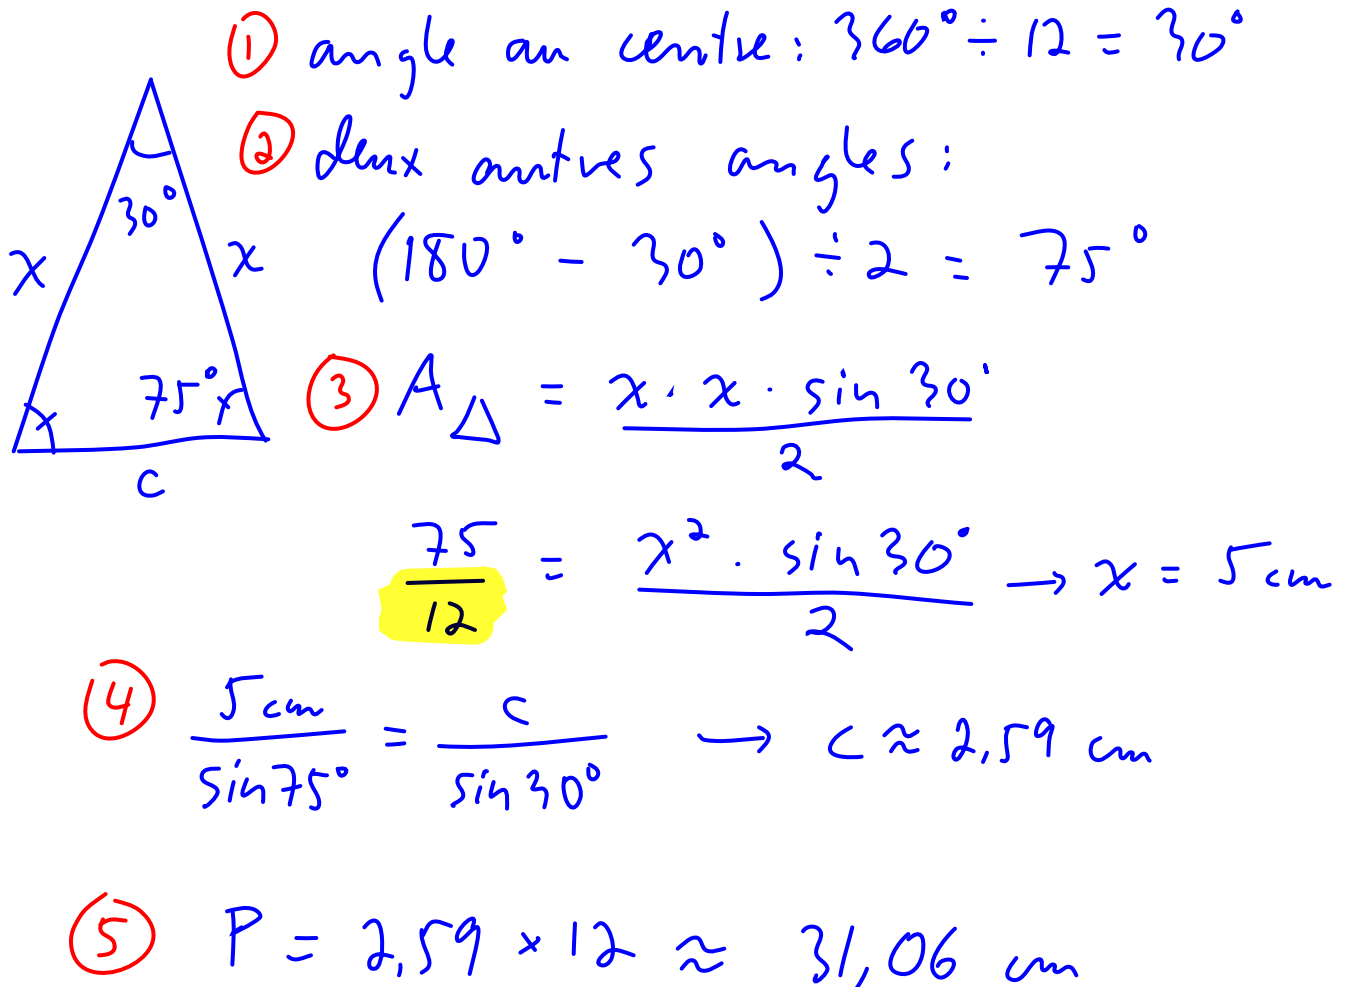 ① angle au centre : 360° ÷ 12 = 30°
② deux autres angles :
(180° - 30°) ÷ 2 = 75°
30°
x
x
75°
c
③ A△ = x · x · sin 30° / 2
75/12 = x² · sin 30° / 2 → x = 5 cm
④ 5 cm / sin 75° = c / sin 30° → c ≈ 2,59 cm
⑤ P = 2,59 × 12 ≈ 31,06 cm